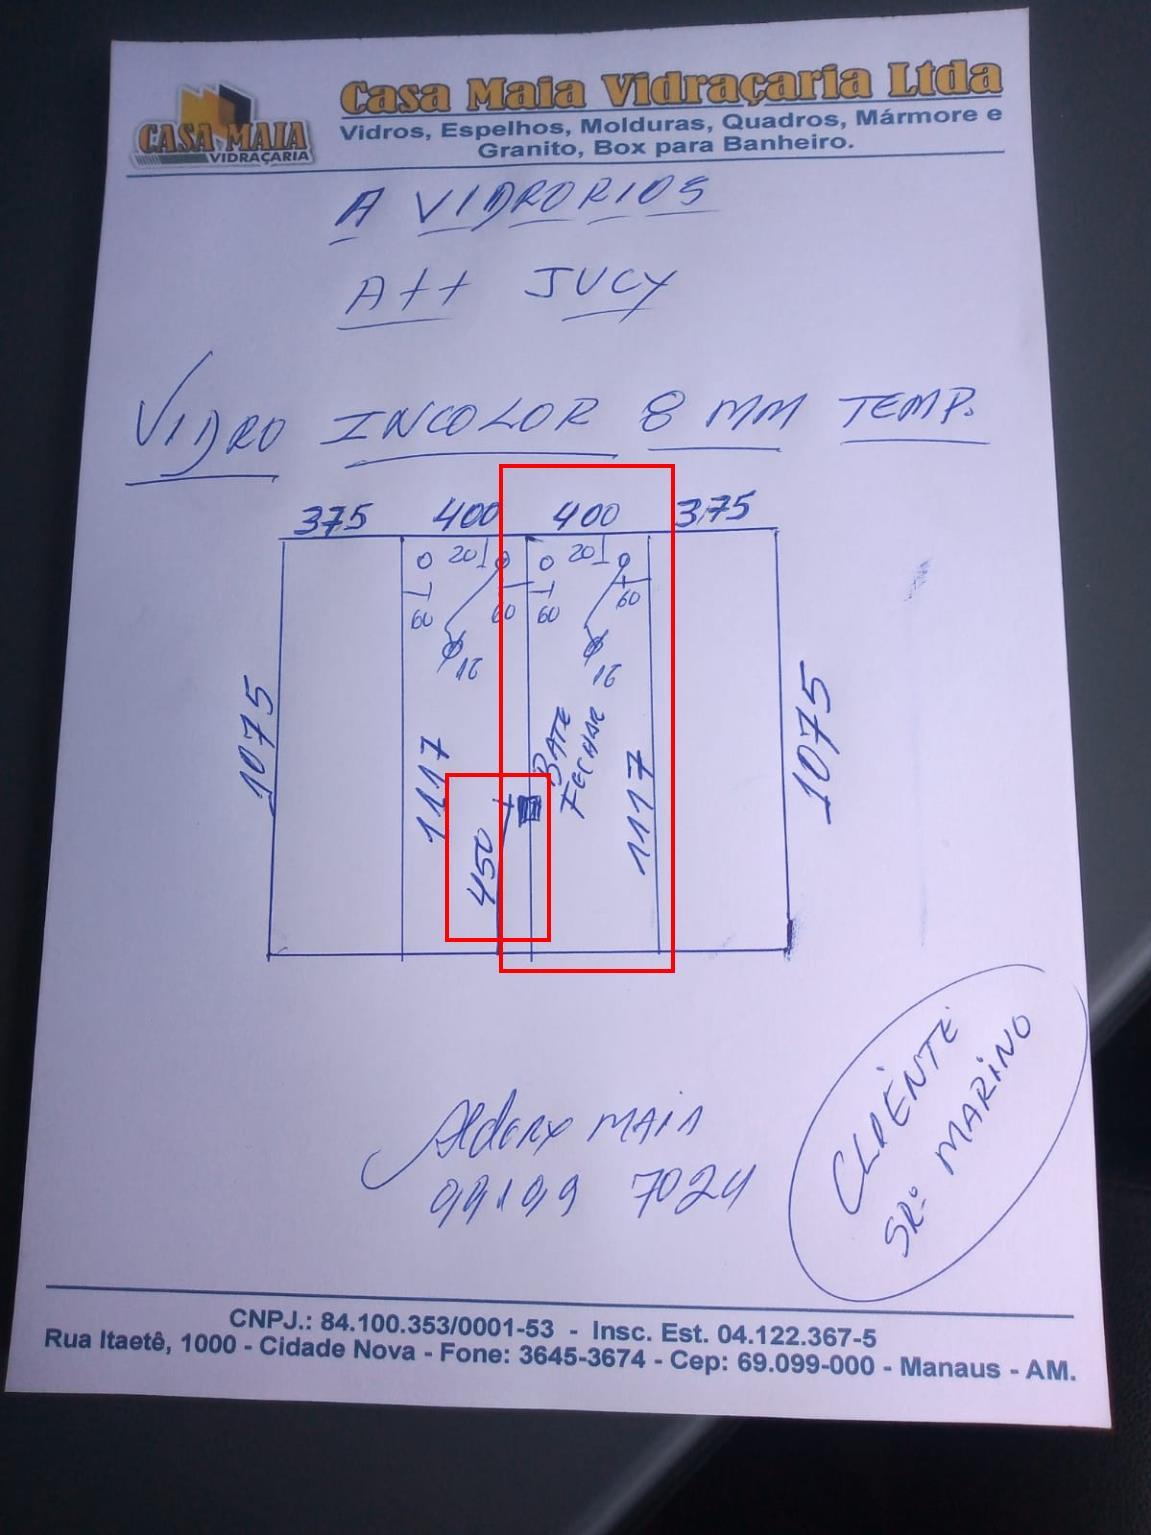 CASA MAIA
VIDRAÇARIA
Casa Maia Vidraçaria Ltda
Vidros, Espelhos, Molduras, Quadros, Mármore e
Granito, Box para Banheiro.
A VIDRORIOS
Att JUCY
VIDRO INCOLOR 8 MM TEMP.
375 400 400 375
20 20
60 60 60 60
16 16
1075 1117 450 BATE FECHAR 1117 1075
CLIENTE
SRº MARINO
Alderx MAIA
99199 7024
CNPJ.: 84.100.353/0001-53 - Insc. Est. 04.122.367-5
Rua Itaetê, 1000 - Cidade Nova - Fone: 3645-3674 - Cep: 69.099-000 - Manaus - AM.